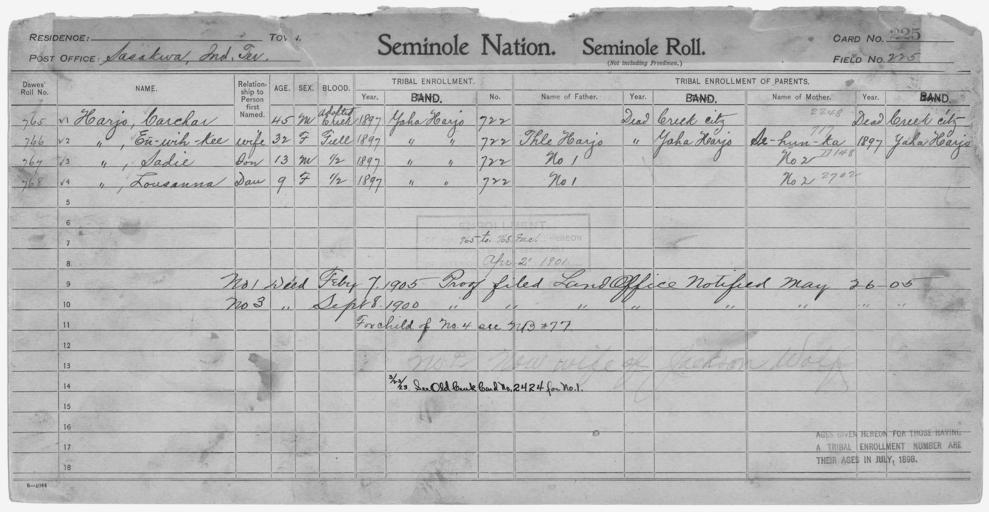 RESIDENCE: TOWN. Seminole Nation. Seminole Roll. CARD No. 225
POST OFFICE: Sasakwa, Ind. Ter. (Not including Freedmen.) FIELD No. 225
Dawes' Roll No. NAME. Relationship to Person first Named. AGE. SEX. BLOOD. TRIBAL ENROLLMENT. TRIBAL ENROLLMENT OF PARENTS.
Year. BAND. No. Name of Father. Year. BAND. Name of Mother. Year. BAND.
765 √1 Harjo, Carchar 45 M Adopted Creek 1897 Yaha Harjo 722 Dead Creek city 2248 Dead Creek city
766 √2 " , En-wih-kee wife 32 F Full 1897 " " 722 Thle Harjo " Yaha Harjo Se-hun-ka 1897 Yaha Harjo
767 √3 " , Sadie Son 13 M 1/2 1897 " " 722 No 1 No 2
768 √4 " , Lousanna Dau 9 F 1/2 1897 " " 722 No 1 No 2 2702
5
6 ENROLLMENT
7
8 Apr 2 1901
9 No 1 Died Feby 7, 1905 Proof filed Land Office Notified May 26-05
10 No 3 " Sept 8 1900 " " " " " " "
11 For child of No. 4 see NB 277
12
13 now wife of Jackson Wolf
14 3/22/23 See Old Creek Card No. 2424 for No. 1.
15
16 AGES GIVEN HEREON FOR THOSE HAVING
17 A TRIBAL ENROLLMENT NUMBER ARE
18 THEIR AGES IN JULY, 1898.
6—4944